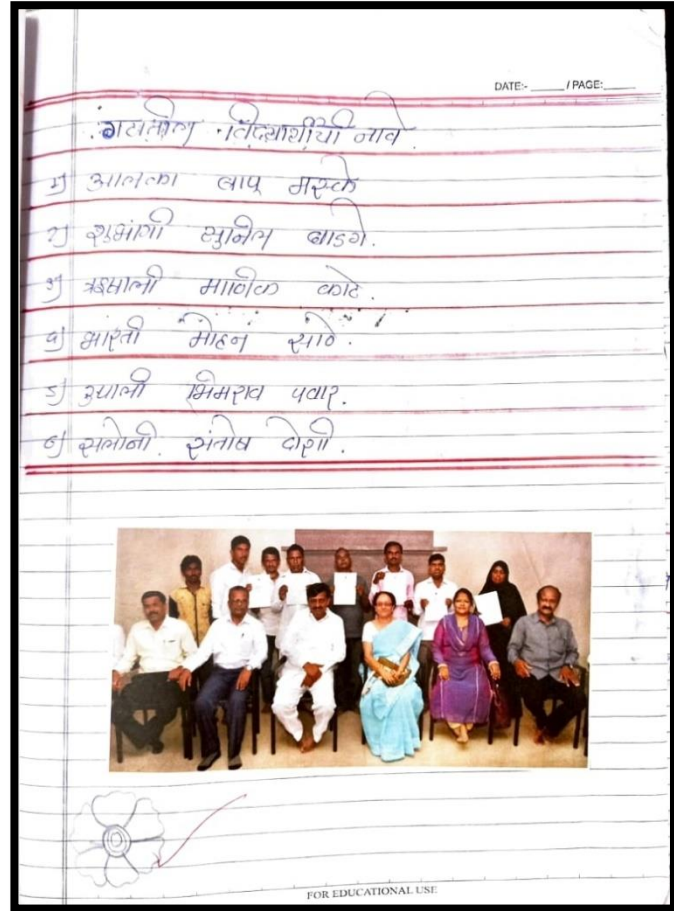 DATE:- ______ / PAGE:______
गटातील विद्यार्थीची नावे
१) आलका बापू मस्के
२) शुभांगी सुनिल घाडगे.
३) ऋषाली माणिक काटे.
४) भारती मोहन साठे.
५) रुपाली भिमराव पवार.
६) सलोनी संतोष दोशी.
FOR EDUCATIONAL USE